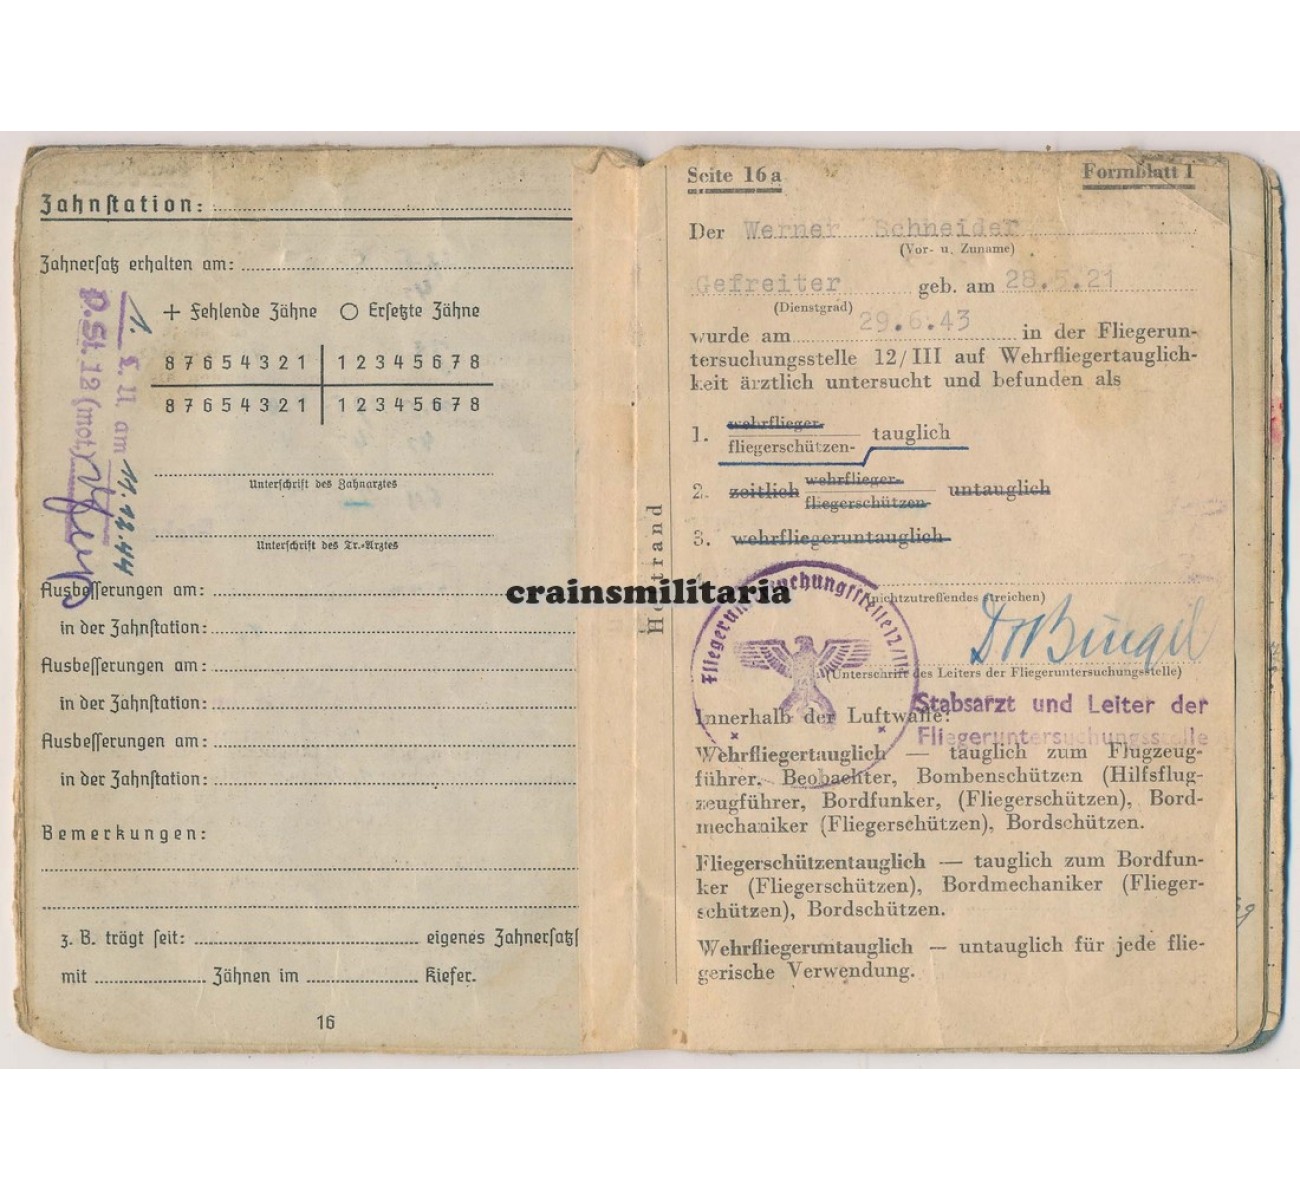 Zahnstation:
Zahnersatz erhalten am:
+ Fehlende Zähne ○ Ersetzte Zähne
8 7 6 5 4 3 2 1 1 2 3 4 5 6 7 8
8 7 6 5 4 3 2 1 1 2 3 4 5 6 7 8
Unterschrift des Zahnarztes
Unterschrift des Tr.-Arztes
1. Z. U. am 11.12.44
D.St. 12 (mot)
Ausbesserungen am:
in der Zahnstation:
Ausbesserungen am:
in der Zahnstation:
Ausbesserungen am:
in der Zahnstation:
Bemerkungen:
z. B. trägt seit: eigenes Zahnersatz
mit Zähnen im Kiefer.
16
crainsmilitaria
Heftrand
Seite 16a Formblatt I
Der Werner Schneider
(Vor- u. Zuname)
Gefreiter geb. am 28.5.21
(Dienstgrad)
wurde am 29.6.43 in der Fliegerun-
tersuchungsstelle 12/III auf Wehrfliegertauglich-
keit ärztlich untersucht und befunden als
1. wehrflieger- tauglich
fliegerschützen-
2. zeitlich wehrflieger- untauglich
fliegerschützen-
3. wehrfliegeruntauglich
(nichtzutreffendes streichen)
Fliegeruntersuchungsstelle 12/III
Dr Bingel
(Unterschrift des Leiters der Fliegeruntersuchungsstelle)
Stabsarzt und Leiter der
Fliegeruntersuchungsstelle
Innerhalb der Luftwaffe:
Wehrfliegertauglich — tauglich zum Flugzeug-
führer, Beobachter, Bombenschützen (Hilfsflug-
zeugführer, Bordfunker, (Fliegerschützen), Bord-
mechaniker (Fliegerschützen), Bordschützen.
Fliegerschützentauglich — tauglich zum Bordfun-
ker (Fliegerschützen), Bordmechaniker (Flieger-
schützen), Bordschützen.
Wehrfliegeruntauglich — untauglich für jede flie-
gerische Verwendung.